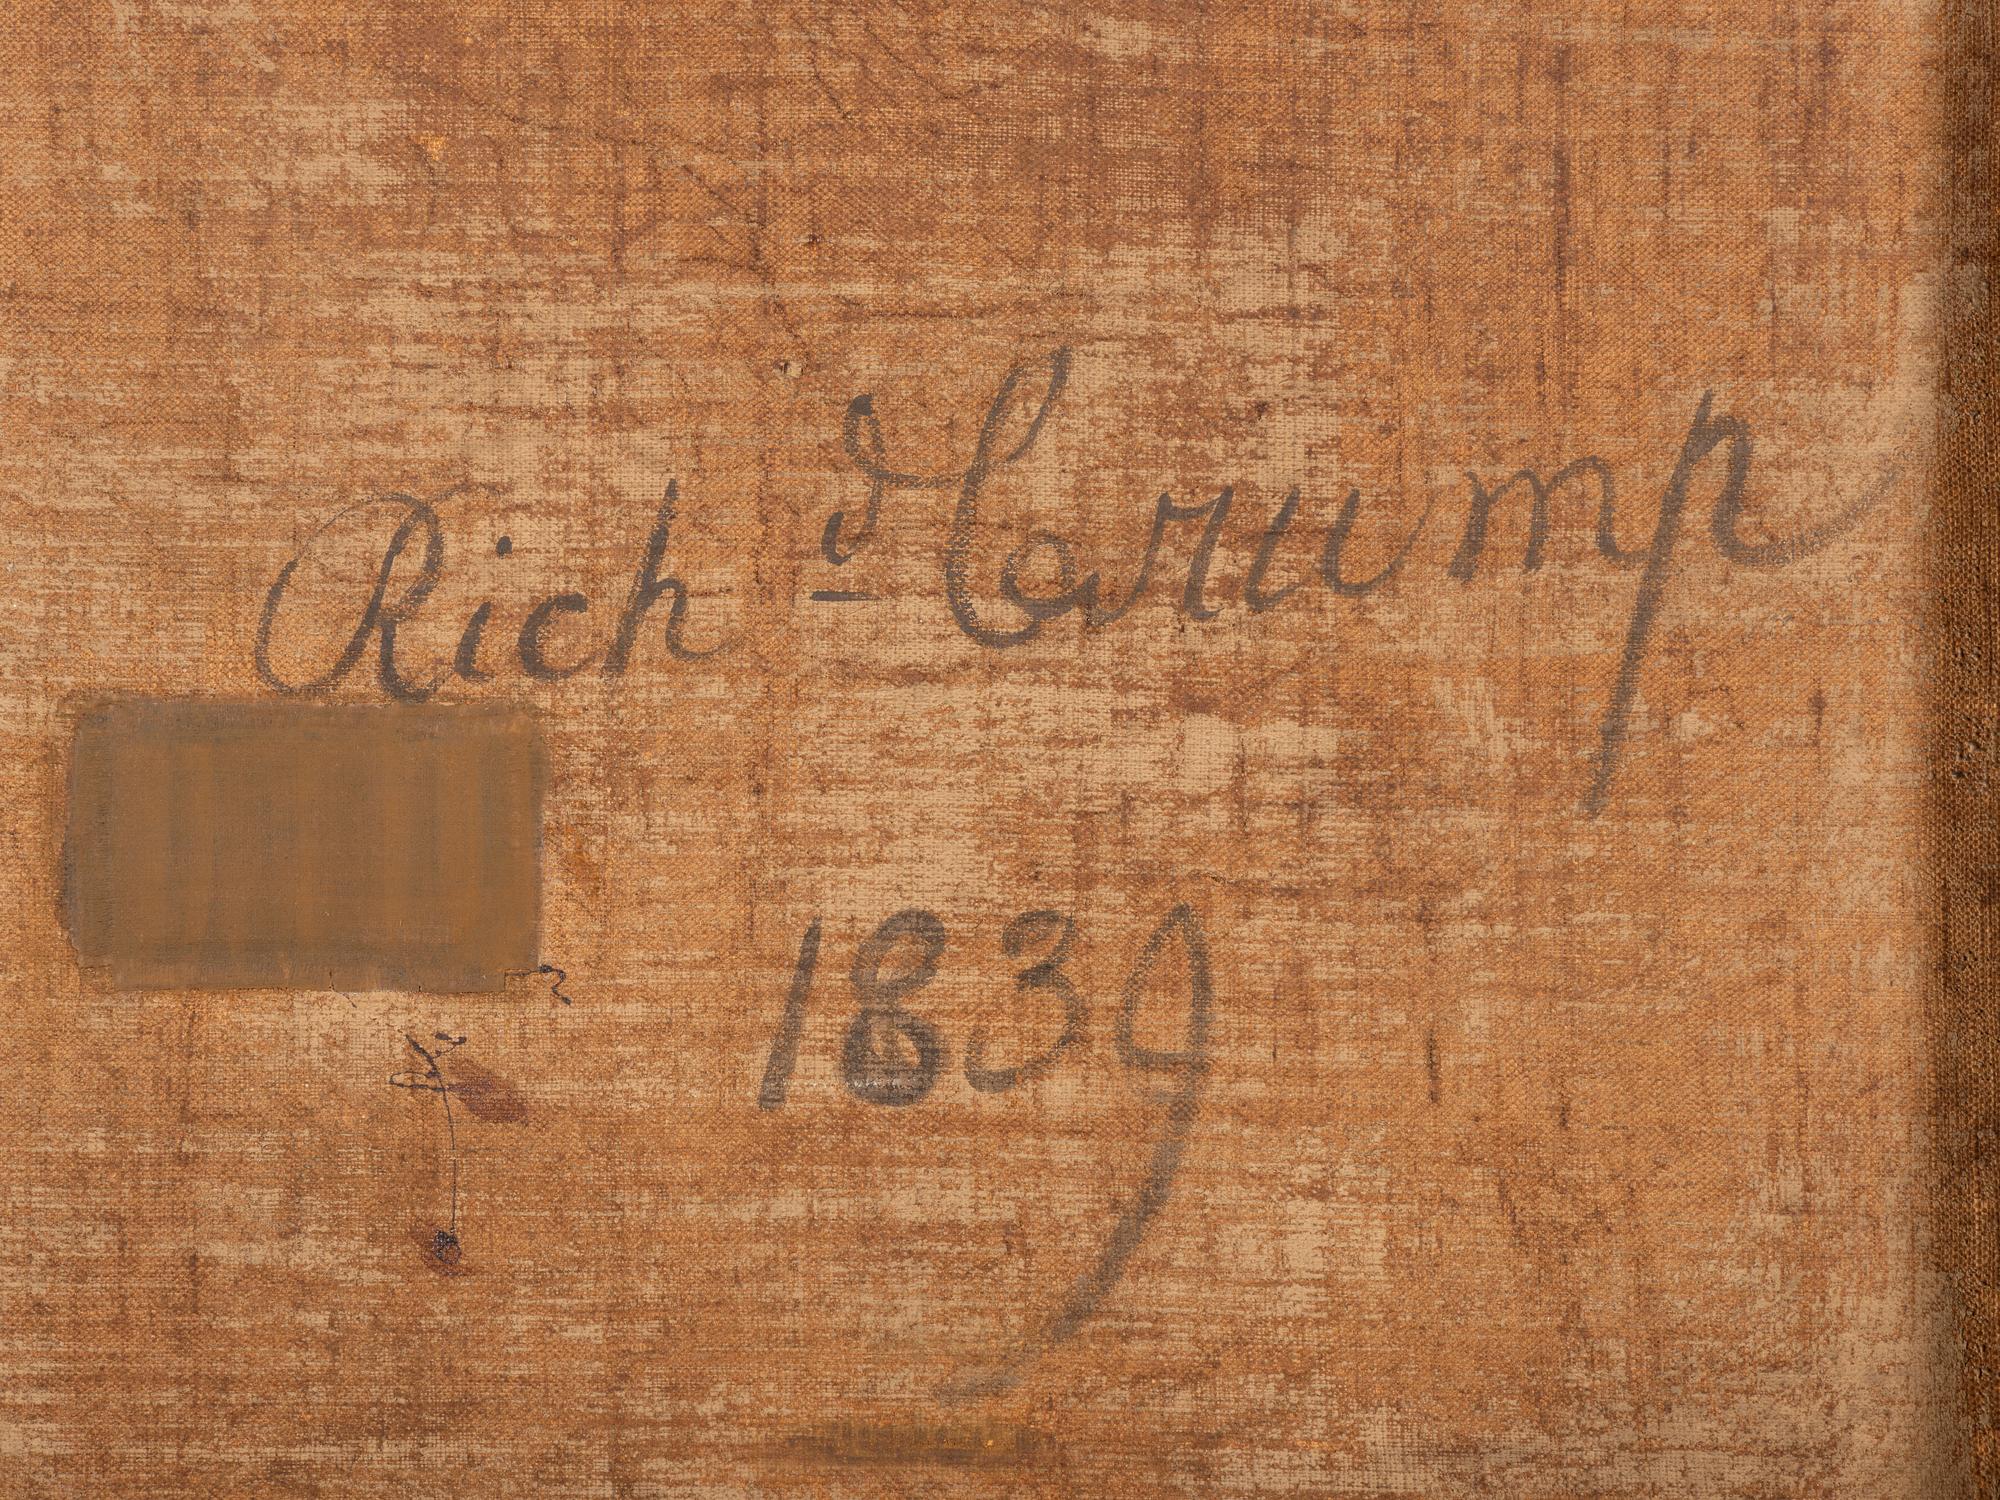 Rich d Crump
1839